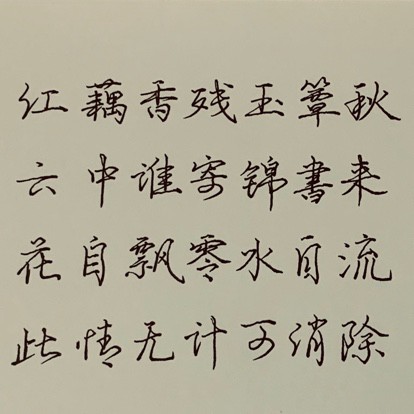 红藕香残玉簟秋
云中谁寄锦書来
花自飘零水自流
此情无计可消除